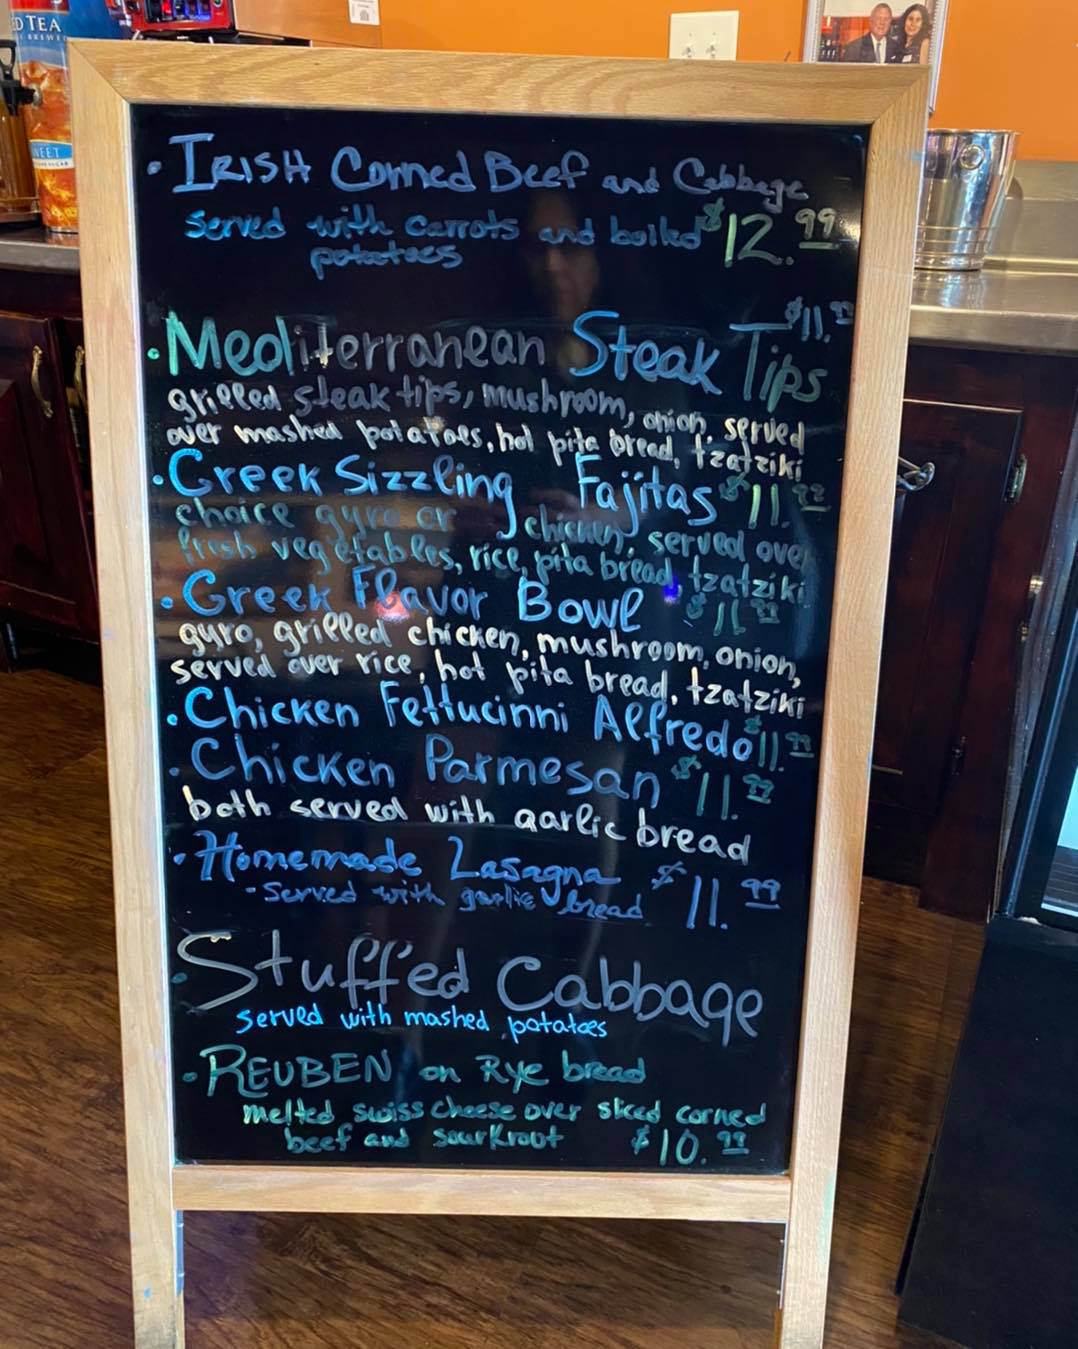 ED TEA
BREWED
WEET
• IRISH Corned Beef and Cabbage
Served with carrots and boiled $12.99
potatoes
$11.99
• Mediterranean Steak Tips
grilled steak tips, mushroom, onion, served
over mashed potatoes, hot pita bread, tzatziki
• Greek Sizzling Fajitas $11.99
choice gyro or chicken, served over
fresh vegetables, rice, pita bread, tzatziki
• Greek Flavor Bowl $11.99
gyro, grilled chicken, mushroom, onion,
served over rice, hot pita bread, tzatziki
• Chicken Fettucinni Alfredo $11.99
• Chicken Parmesan $11.99
both served with garlic bread
• Homemade Lasagna $11.99
- Served with garlic bread
• Stuffed Cabbage
served with mashed potatoes
• REUBEN on Rye bread
melted swiss cheese over sliced corned
beef and sourkrout $10.99